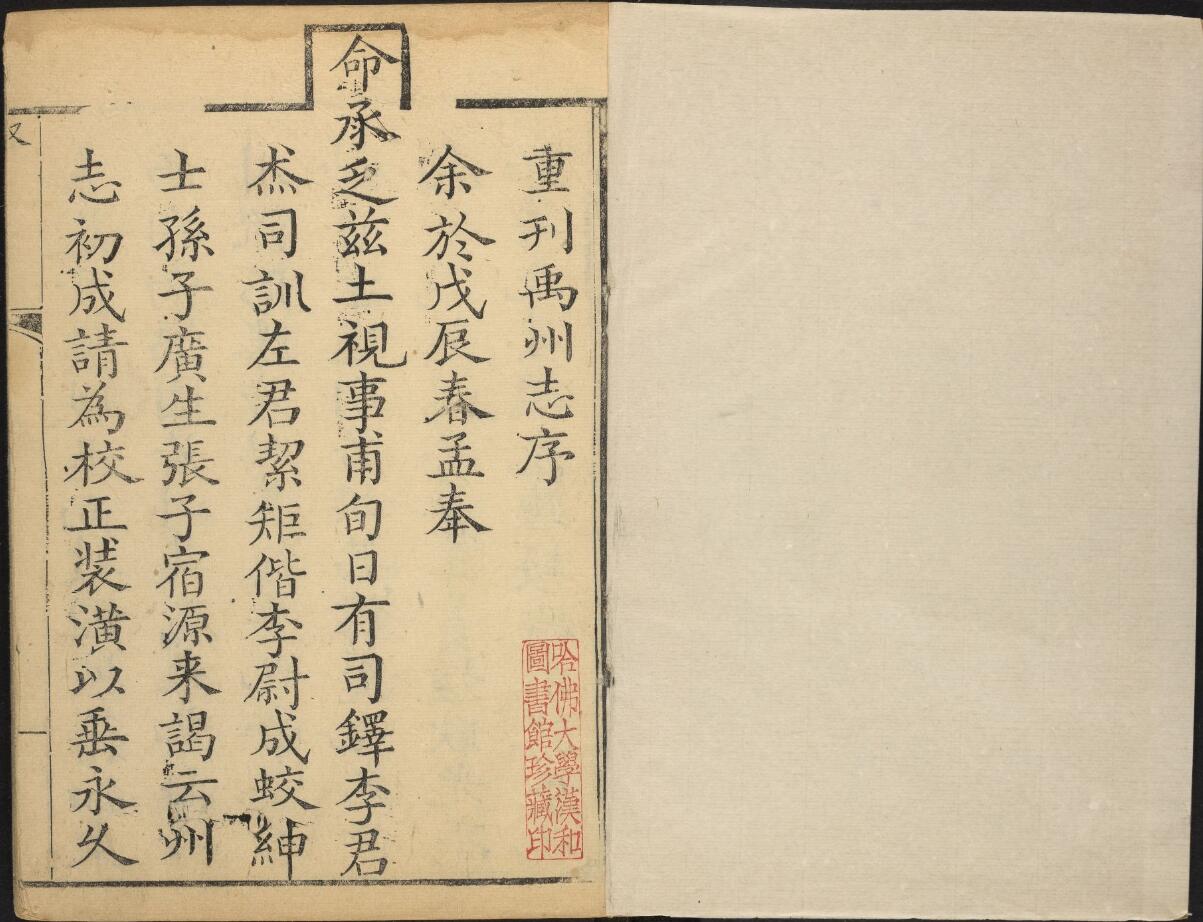 重刊禹州志序
余於戊辰春孟奉
命承乏茲土視事甫旬日有司鐸李君
杰司訓左君絜矩偕李尉成蛟紳
士孫子廣生張子宿源来謁云州
志初成請為校正装潢以垂永久
哈佛大學漢和
圖書館珍藏印